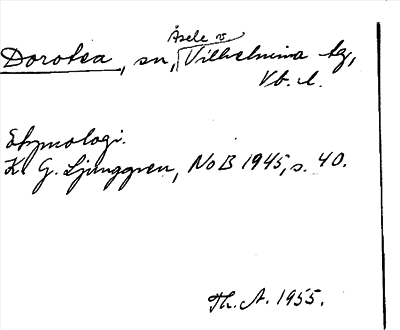 Åsele v
Dorotea, sn, Vilhelmina tg,
Vb. l.
Etymologi.
K. G. Ljunggren, NoB 1945, s. 40.
Th. A. 1955.